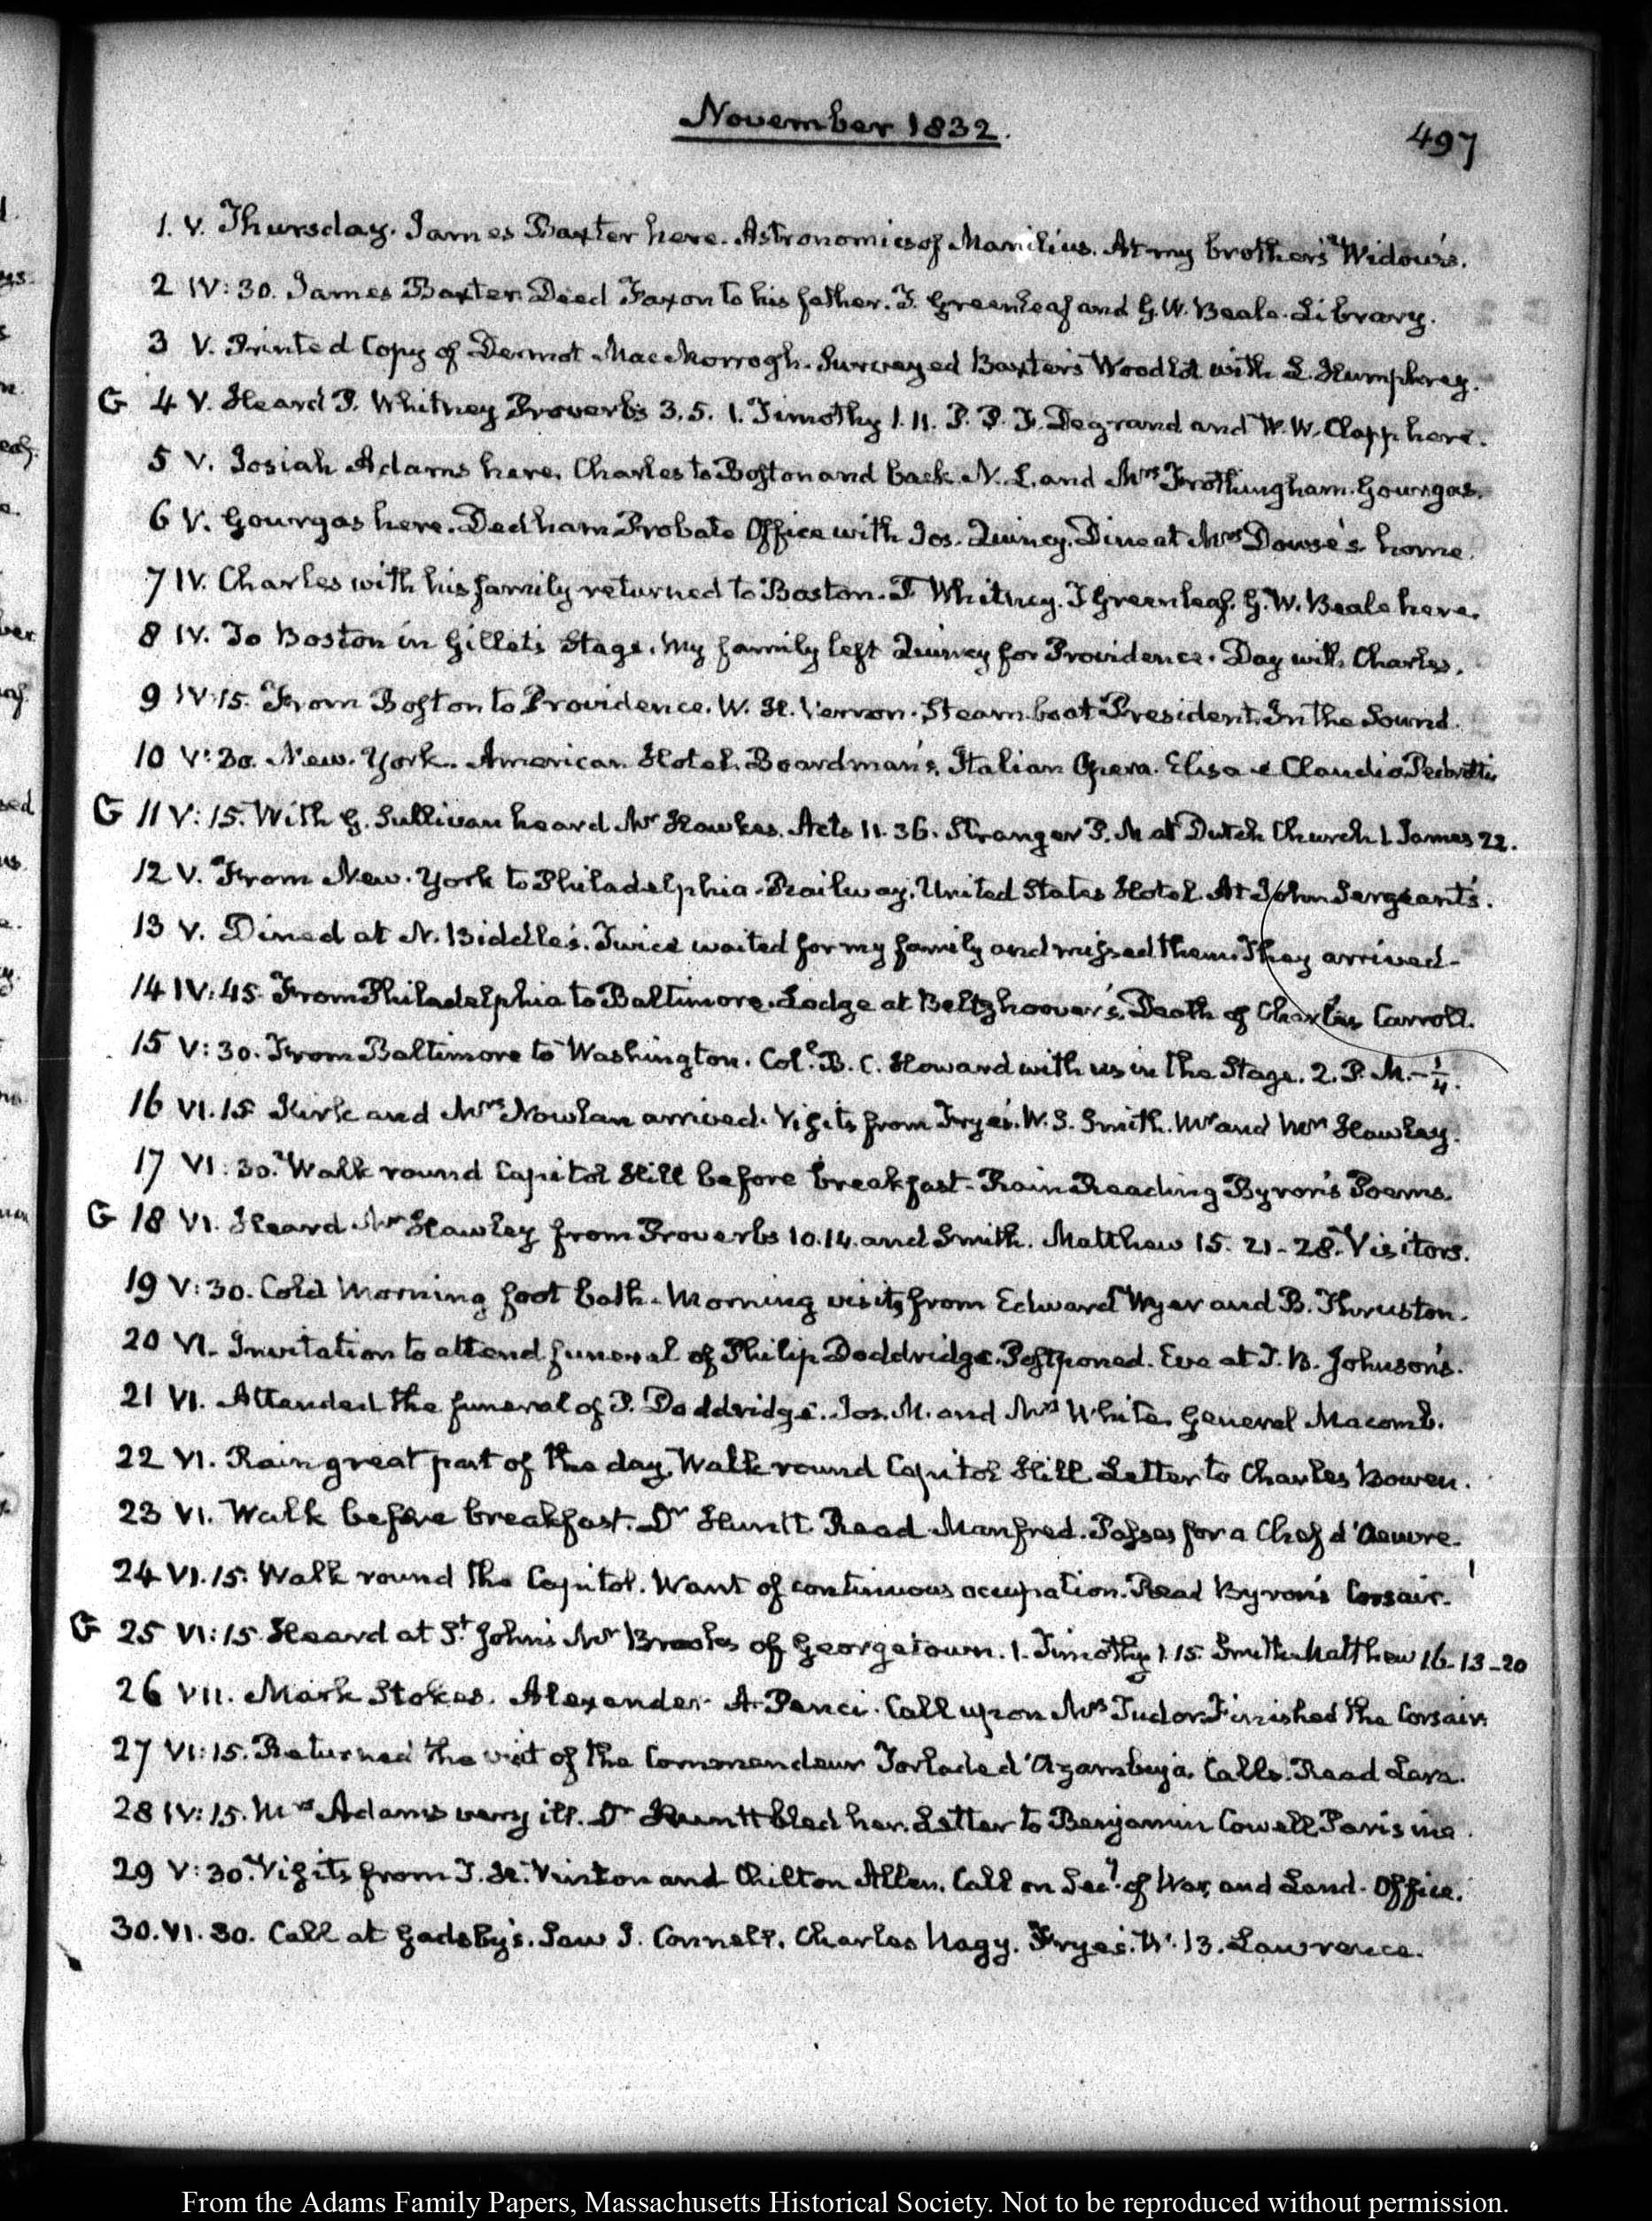 November 1832.
497
1. V. Thursday. James Baxter here. Astronomics of Manilius. At my brother's Widow's.
2 IV:30. James Baxter. Deed Faxon to his father. T. Greenleaf and G. W. Beale. Library.
3 V. Printed Copy of Dermot MacMorrogh. Surveyed Baxter's Wood Lot with L. Humphrey.
G 4 V. Heard P. Whitney Proverbs 3.5. 1. Timothy 1.11. P. P. F. Degrand and W. W. Clapp here.
5 V. Josiah Adams here. Charles to Boston and back. N. L. and Mrs Frothingham. Gourgas.
6 V. Gourgas here. Dedham Probate Office with Jos. Quincy. Dine at Mrs Dowse's home.
7 IV. Charles with his family returned to Boston. F Whitney. T Greenleaf. G. W. Beale here.
8 IV. To Boston in Gillet's Stage. My family left Quincy for Providence. Day with Charles.
9 IV:15. From Boston to Providence. W. H. Vernon. Steam boat President. In the Sound.
10 V:30. New-York. American Hotel. Boardman's. Italian Opera. Elisa e Claudio
G 11 V:15. With G. Sullivan heard Mr Hawkes. Acts 11.26. Stranger P. M at Dutch Church 1 James 22.
12 V. From New-York to Philadelphia. Railway. United States Hotel. At John Sergeant's.
13 V. Dined at N. Biddle's. Twice waited for my family and missed them. They arrived-
14 IV:45. From Philadelphia to Baltimore. Lodge at Beltzhoover's. Death of Charles Carroll.
15 V:30. From Baltimore to Washington. Col.l B. C. Howard with us in the Stage. 2. P. M.-1/4.
16 VI.15 Kirk and Mrs Nowlan arrived. Visits from Frye's. W. S. Smith. Mr and Mrs Hawley.
17 VI:30. Walk round Capitol Hill before breakfast- Rain Reading Byron's Poems.
G 18 VI. Heard Mr Hawley from Proverbs 10.14. and Smith. Matthew 15. 21-28. Visitors.
19 V:30. Cold Morning foot bath. Morning visits from Edward Wyer and B. Thruston.
20 VI. Invitation to attend funeral of Philip Doddridge. Postponed. Eve at J. B. Johnson's.
21 VI. Attended the funeral of P. Doddridge. Jos. M. and Mrs White. General Macomb.
22 VI. Rain great part of the day. Walk round Capitol Hill. Letter to Charles Bowen.
23 VI. Walk before breakfast. Dr Huntt. Read Manfred. Passes for a Chef d'Oeuvre.
24 VI.15. Walk round the Capitol. Want of continuous occupation. Read Byron's Corsair.
G 25 VI:15 Heard at St John's Mr Brooke of Georgetown. 1. Timothy 1.15. Smith Matthew 16-13-20
26 VII. Mark Stokes. Alexander A. Call upon Mrs Tudor. Finished the Corsair.
27 VI:15. Returned the visit of the Commandeur Torlade d'Azambuja. Calls. Read Lara.
28 IV:15. Mrs Adams very ill. Dr Huntt bled her. Letter to Benjamin Cowell Parisina.
29 V:30. Visits from J. H. Vinton and Chilton Allen. Call on Secy. of War, and Land-Office.
30. VI.30. Call at Gadsby's. Saw J. Connell. Charles Nagy. Frye's. W. B. Lawrence.
From the Adams Family Papers, Massachusetts Historical Society. Not to be reproduced without permission.